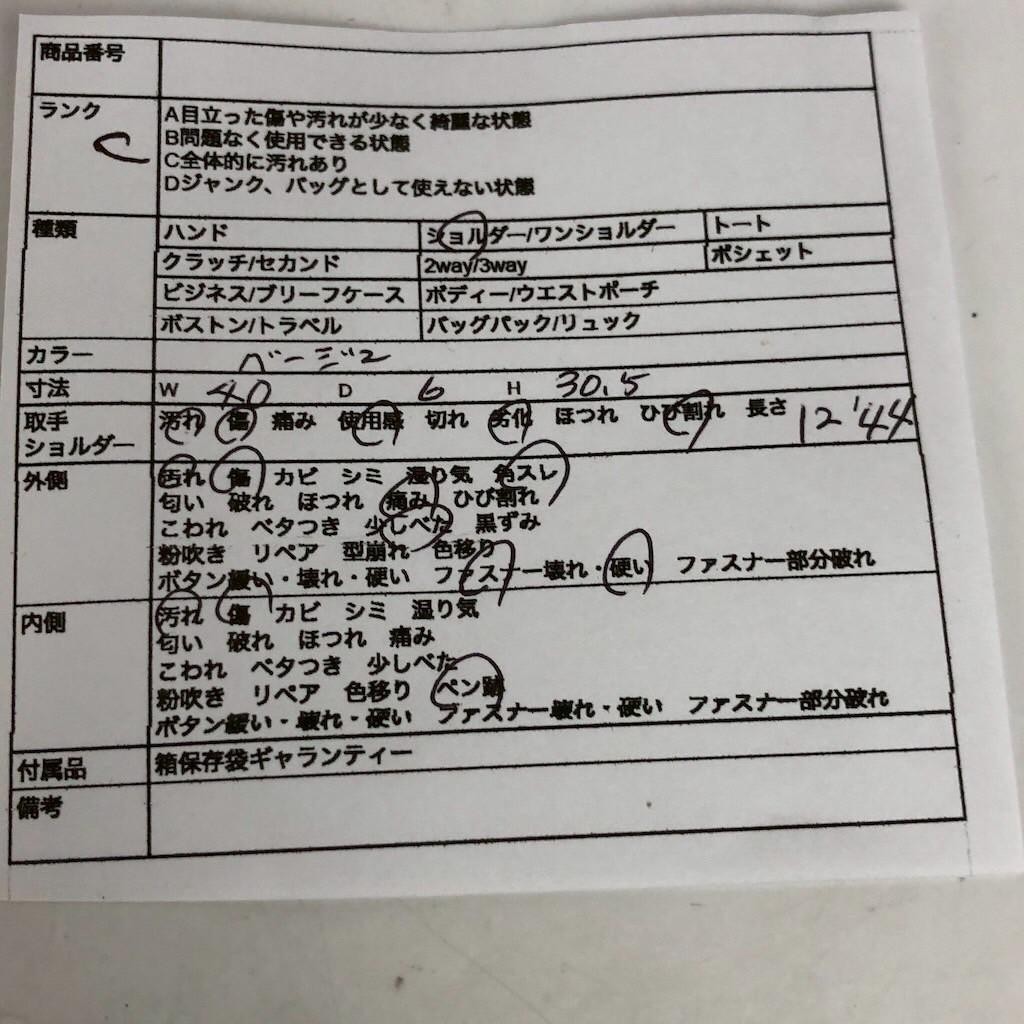 商品番号
ランク C
A目立った傷や汚れが少なく綺麗な状態
B問題なく使用できる状態
C全体的に汚れあり
Dジャンク、バッグとして使えない状態
種類
ハンド ショルダー/ワンショルダー トート
クラッチ/セカンド 2way/3way ポシェット
ビジネス/ブリーフケース ボディー/ウエストポーチ
ボストン/トラベル バッグパック/リュック
カラー ベージュ
寸法 W 40 D 6 H 30.5
取手 汚れ 傷 痛み 使用感 切れ 劣化 ほつれ ひび割れ 長さ 12 44
ショルダー
外側 汚れ 傷 カビ シミ 湿り気 角スレ
匂い 破れ ほつれ 痛み ひび割れ
こわれ ベタつき 少しべた 黒ずみ
粉吹き リペア 型崩れ 色移り
ボタン緩い・壊れ・硬い ファスナー壊れ・硬い ファスナー部分破れ
内側 汚れ 傷 カビ シミ 湿り気
匂い 破れ ほつれ 痛み
こわれ ベタつき 少しべた
粉吹き リペア 色移り ペン跡
ボタン緩い・壊れ・硬い ファスナー壊れ・硬い ファスナー部分破れ
付属品 箱保存袋ギャランティー
備考